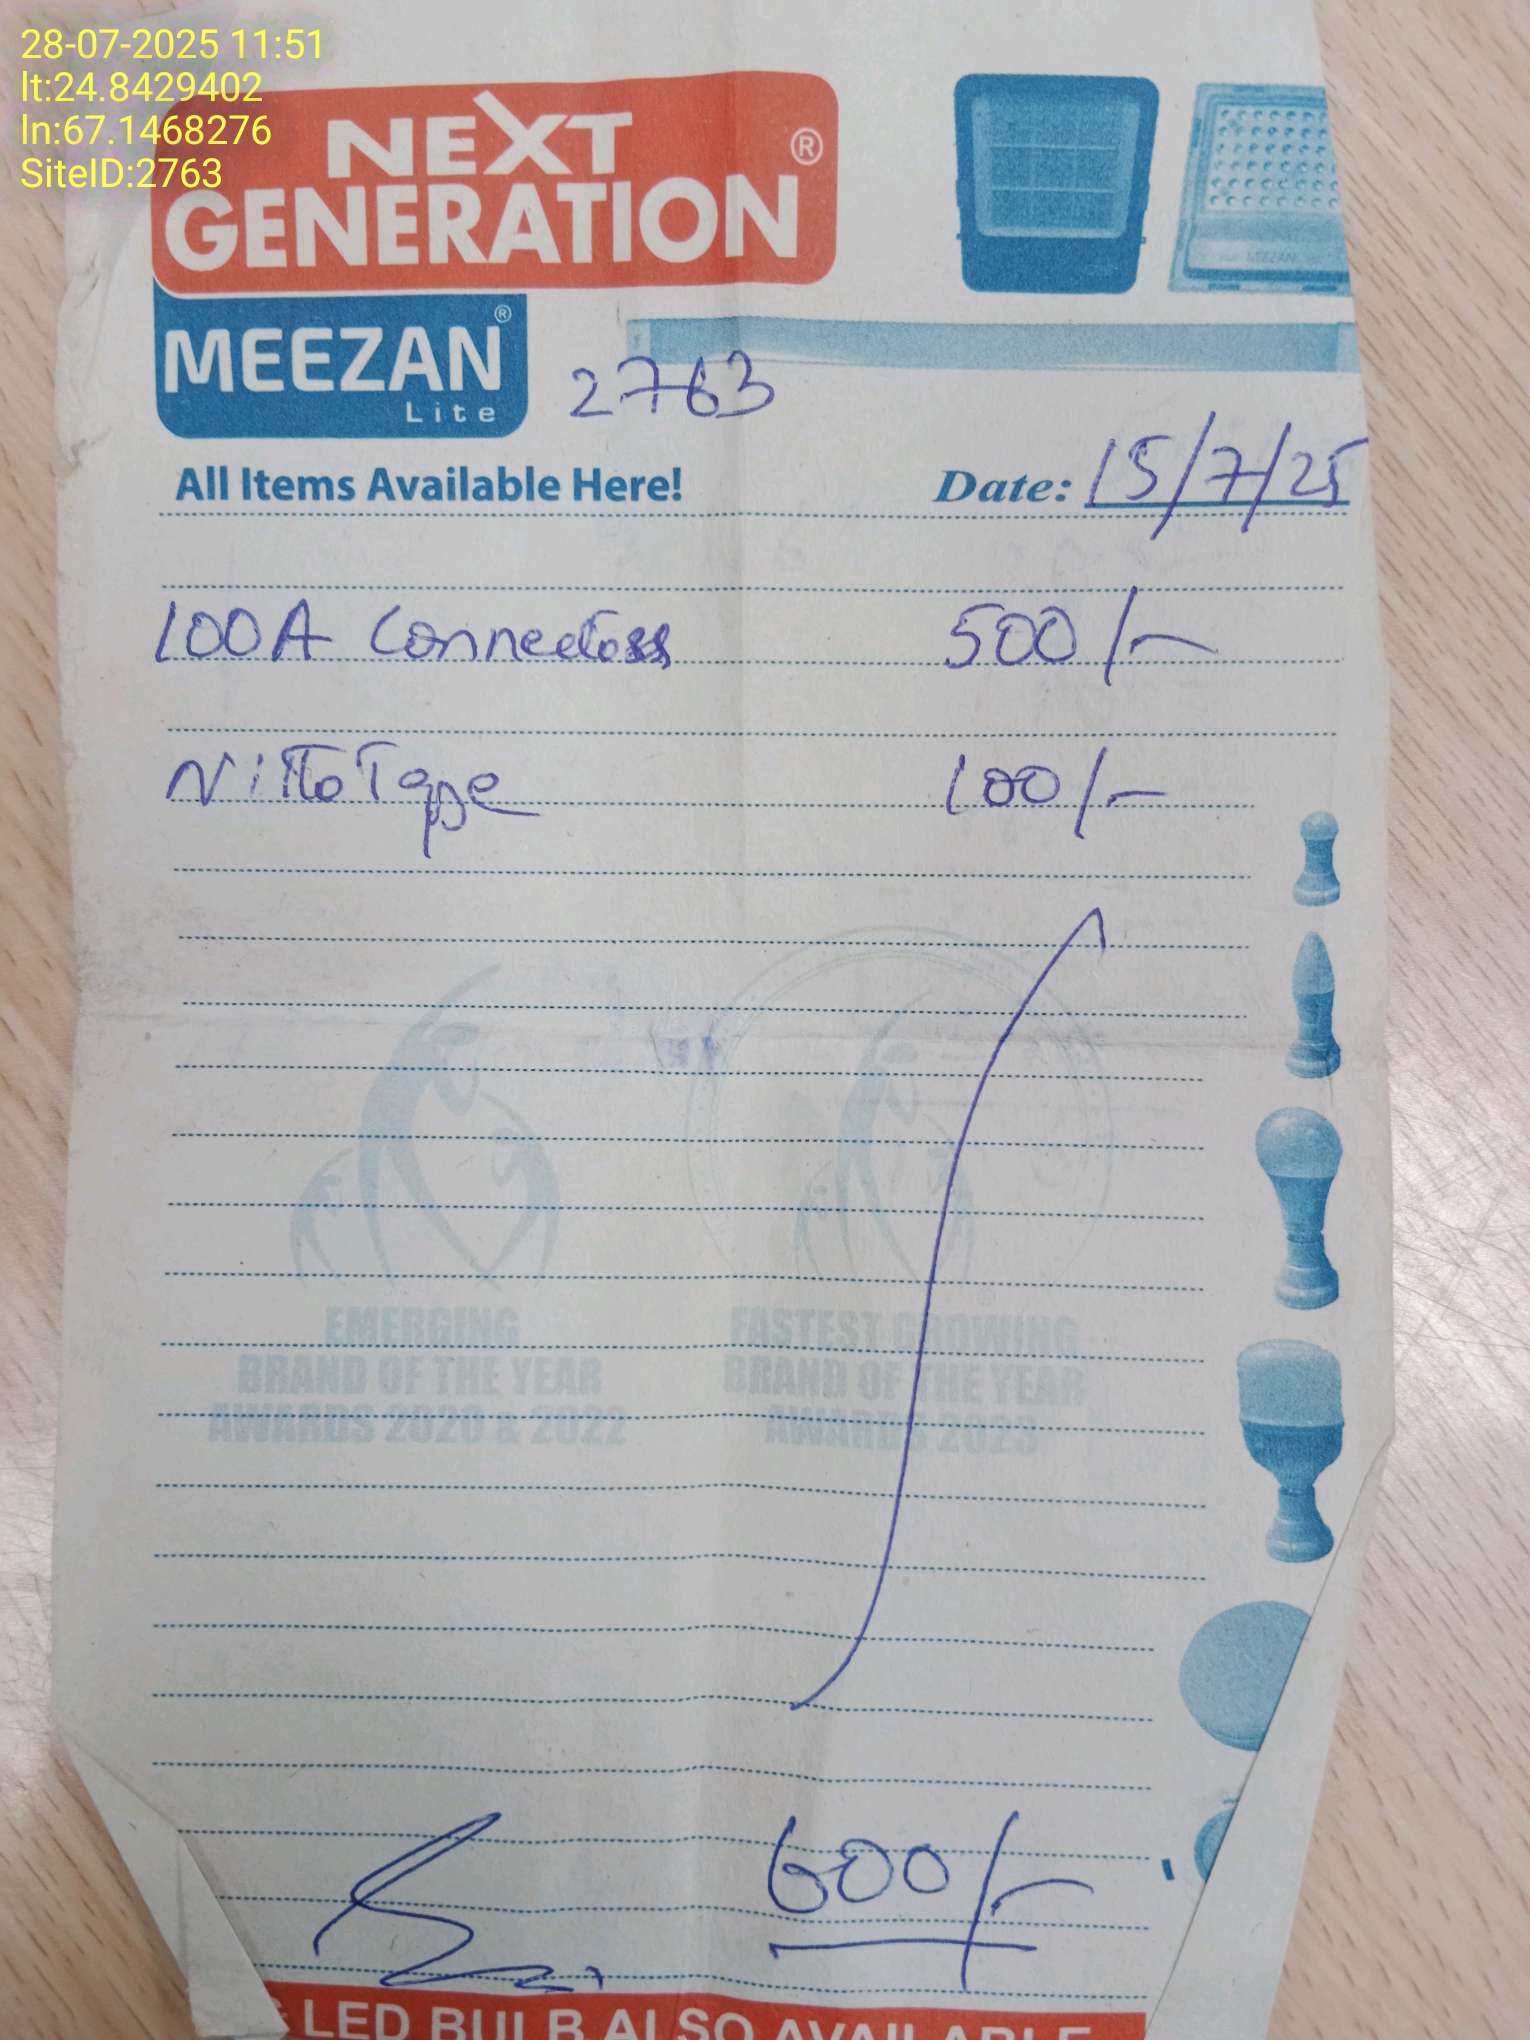 28-07-2025 11:51
lt:24.8429402
ln:67.1468276
SiteID:2763
NEXT
GENERATION®
MEEZAN®
Lite
2763
All Items Available Here!
Date: 15/7/25
100A Connectoss 500/-
Nitto Tape 100/-
EMERGING
BRAND OF THE YEAR
AWARDS 2020 & 2022
FASTEST GROWING
BRAND OF THE YEAR
AWARDS 2023
600/-
LED BULB ALSO AVAILABLE